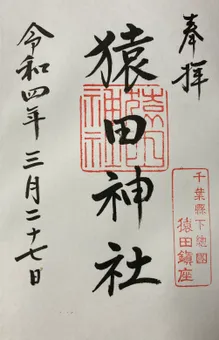 奉拝
千葉縣下総國
猿田鎮座
猿田神社
猿田神社
令和四年三月二十七日